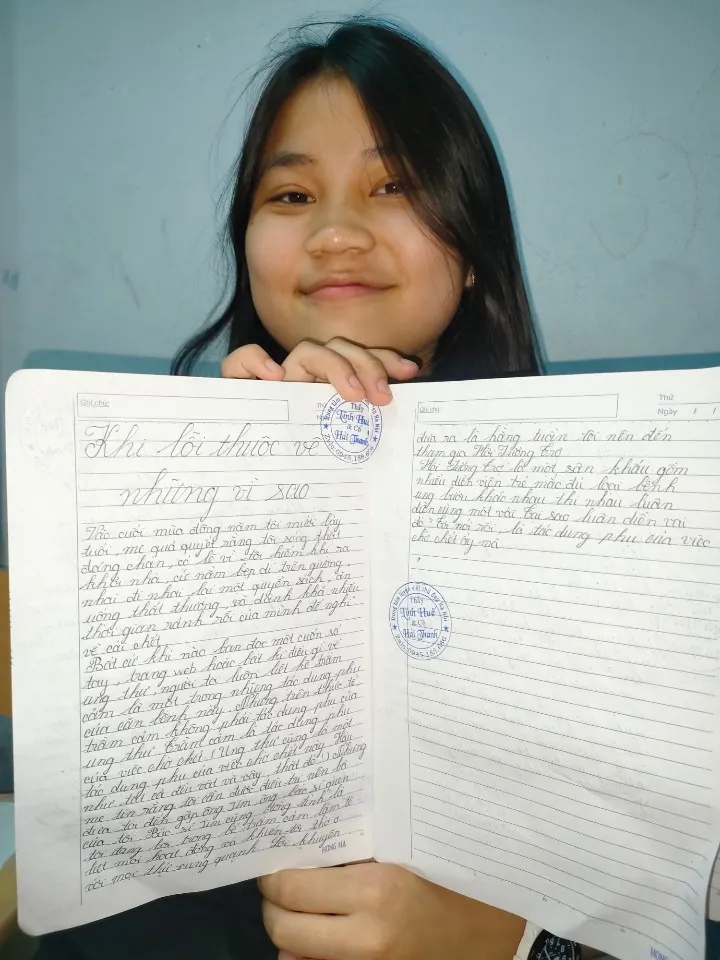 Ghi chú:
Khi lỗi thuộc về
những vì sao
Vào cuối mùa đông năm tôi mười bảy
tuổi, mẹ quả quyết rằng tôi sống thật
đáng chán, có lẽ vì tôi hiếm khi ra
khỏi nhà, cứ nằm bẹp dí trên giường,
nhai đi nhai lại một quyển sách, ăn
uống thất thường, và dành khá nhiều
thời gian rảnh rỗi của mình để nghĩ
về cái chết.
Bất cứ khi nào bạn đọc một cuốn sổ
tay, trang web hoặc bất kì điều gì về
ung thư, người ta luôn liệt kê trầm
cảm là một trong những tác dụng phụ
của căn bệnh này. Nhưng trên thực tế,
trầm cảm không phải tác dụng phụ của
ung thư. Trầm cảm là tác dụng phụ
của việc chờ chết! (Ung thư cũng là một
tác dụng phụ của việc chờ chết này. Hầu
như tất cả đều vậy, thật đó!) Nhưng
mẹ tin rằng tôi cần được điều trị nên đã
đưa tôi đến gặp ông Jim ông bác sĩ quen
của tôi. Bác sĩ Jim cũng đồng tình là
tôi đang lội trong bể trầm cảm làm tê
liệt mọi hoạt động và khiến tôi thờ ơ
với mọi thứ xung quanh. Lời khuyên
HONG HA
Thầy
Linh Huê
& Cô
Hải Thanh
Ghi chú:
Thứ
Ngày / /
đưa ra là hằng tuần tôi nên đến
tham gia Hội Tương Trợ.
Hội Tương Trợ là một sân khấu gồm
nhiều diễn viên trẻ mắc đủ loại bệnh
ung bướu khác nhau thi nhau luân
diễn cùng một vai. Tại sao luân diễn vai
đó? Tôi nói rồi, là tác dụng phụ của việc
chờ chết ấy mà
Thầy
Linh Huê
& Cô
Hải Thanh
HONG